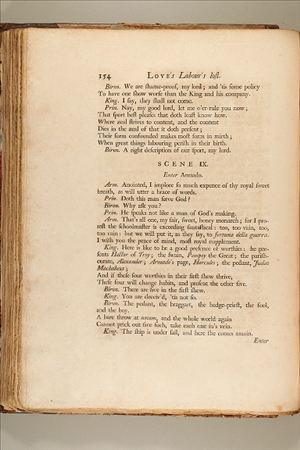 154 LOVE's Labour's lost.
Biron. We are shame-proof, my lord; and 'tis some policy
To have one show worse than the King and his company.
King. I say, they shall not come.
Prin. Nay, my good lord, let me o'er-rule you now;
That sport best pleases that doth least know how.
Where zeal strives to content, and the content
Dies in the zeal of that it doth present;
Their form confounded makes most form in mirth;
When great things labouring perish in their birth.
Biron. A right description of our sport, my lord.
SCENE IX.
Enter Armado.
Arm. Anointed, I implore so much expence of thy royal sweet
breath, as will utter a brace of words.
Prin. Doth this man serve God?
Biron. Why ask you?
Prin. He speaks not like a man of God's making.
Arm. That's all one, my fair, sweet, honey monarch; for I pro-
test the schoolmaster is exceeding fantastical: too, too vain, too,
too vain: but we will put it, as they say, to fortuna della guerra.
I wish you the peace of mind, most royal cupplement.
King. Here is like to be a good presence of worthies: he pre-
sents Hector of Troy; the swain, Pompey the Great; the parish-
curate, Alexander; Armado's page, Hercules; the pedant, Judas
Machabeus;
And if these four worthies in their first shew thrive,
These four will change habits, and present the other five.
Biron. There are five in the first shew.
King. You are deceiv'd, 'tis not so.
Biron. The pedant, the braggart, the hedge-priest, the fool,
and the boy.
A bare throw at novum, and the whole world again
Cannot prick out five such, take each one in's vein.
King. The ship is under sail, and here she comes amain.
Enter